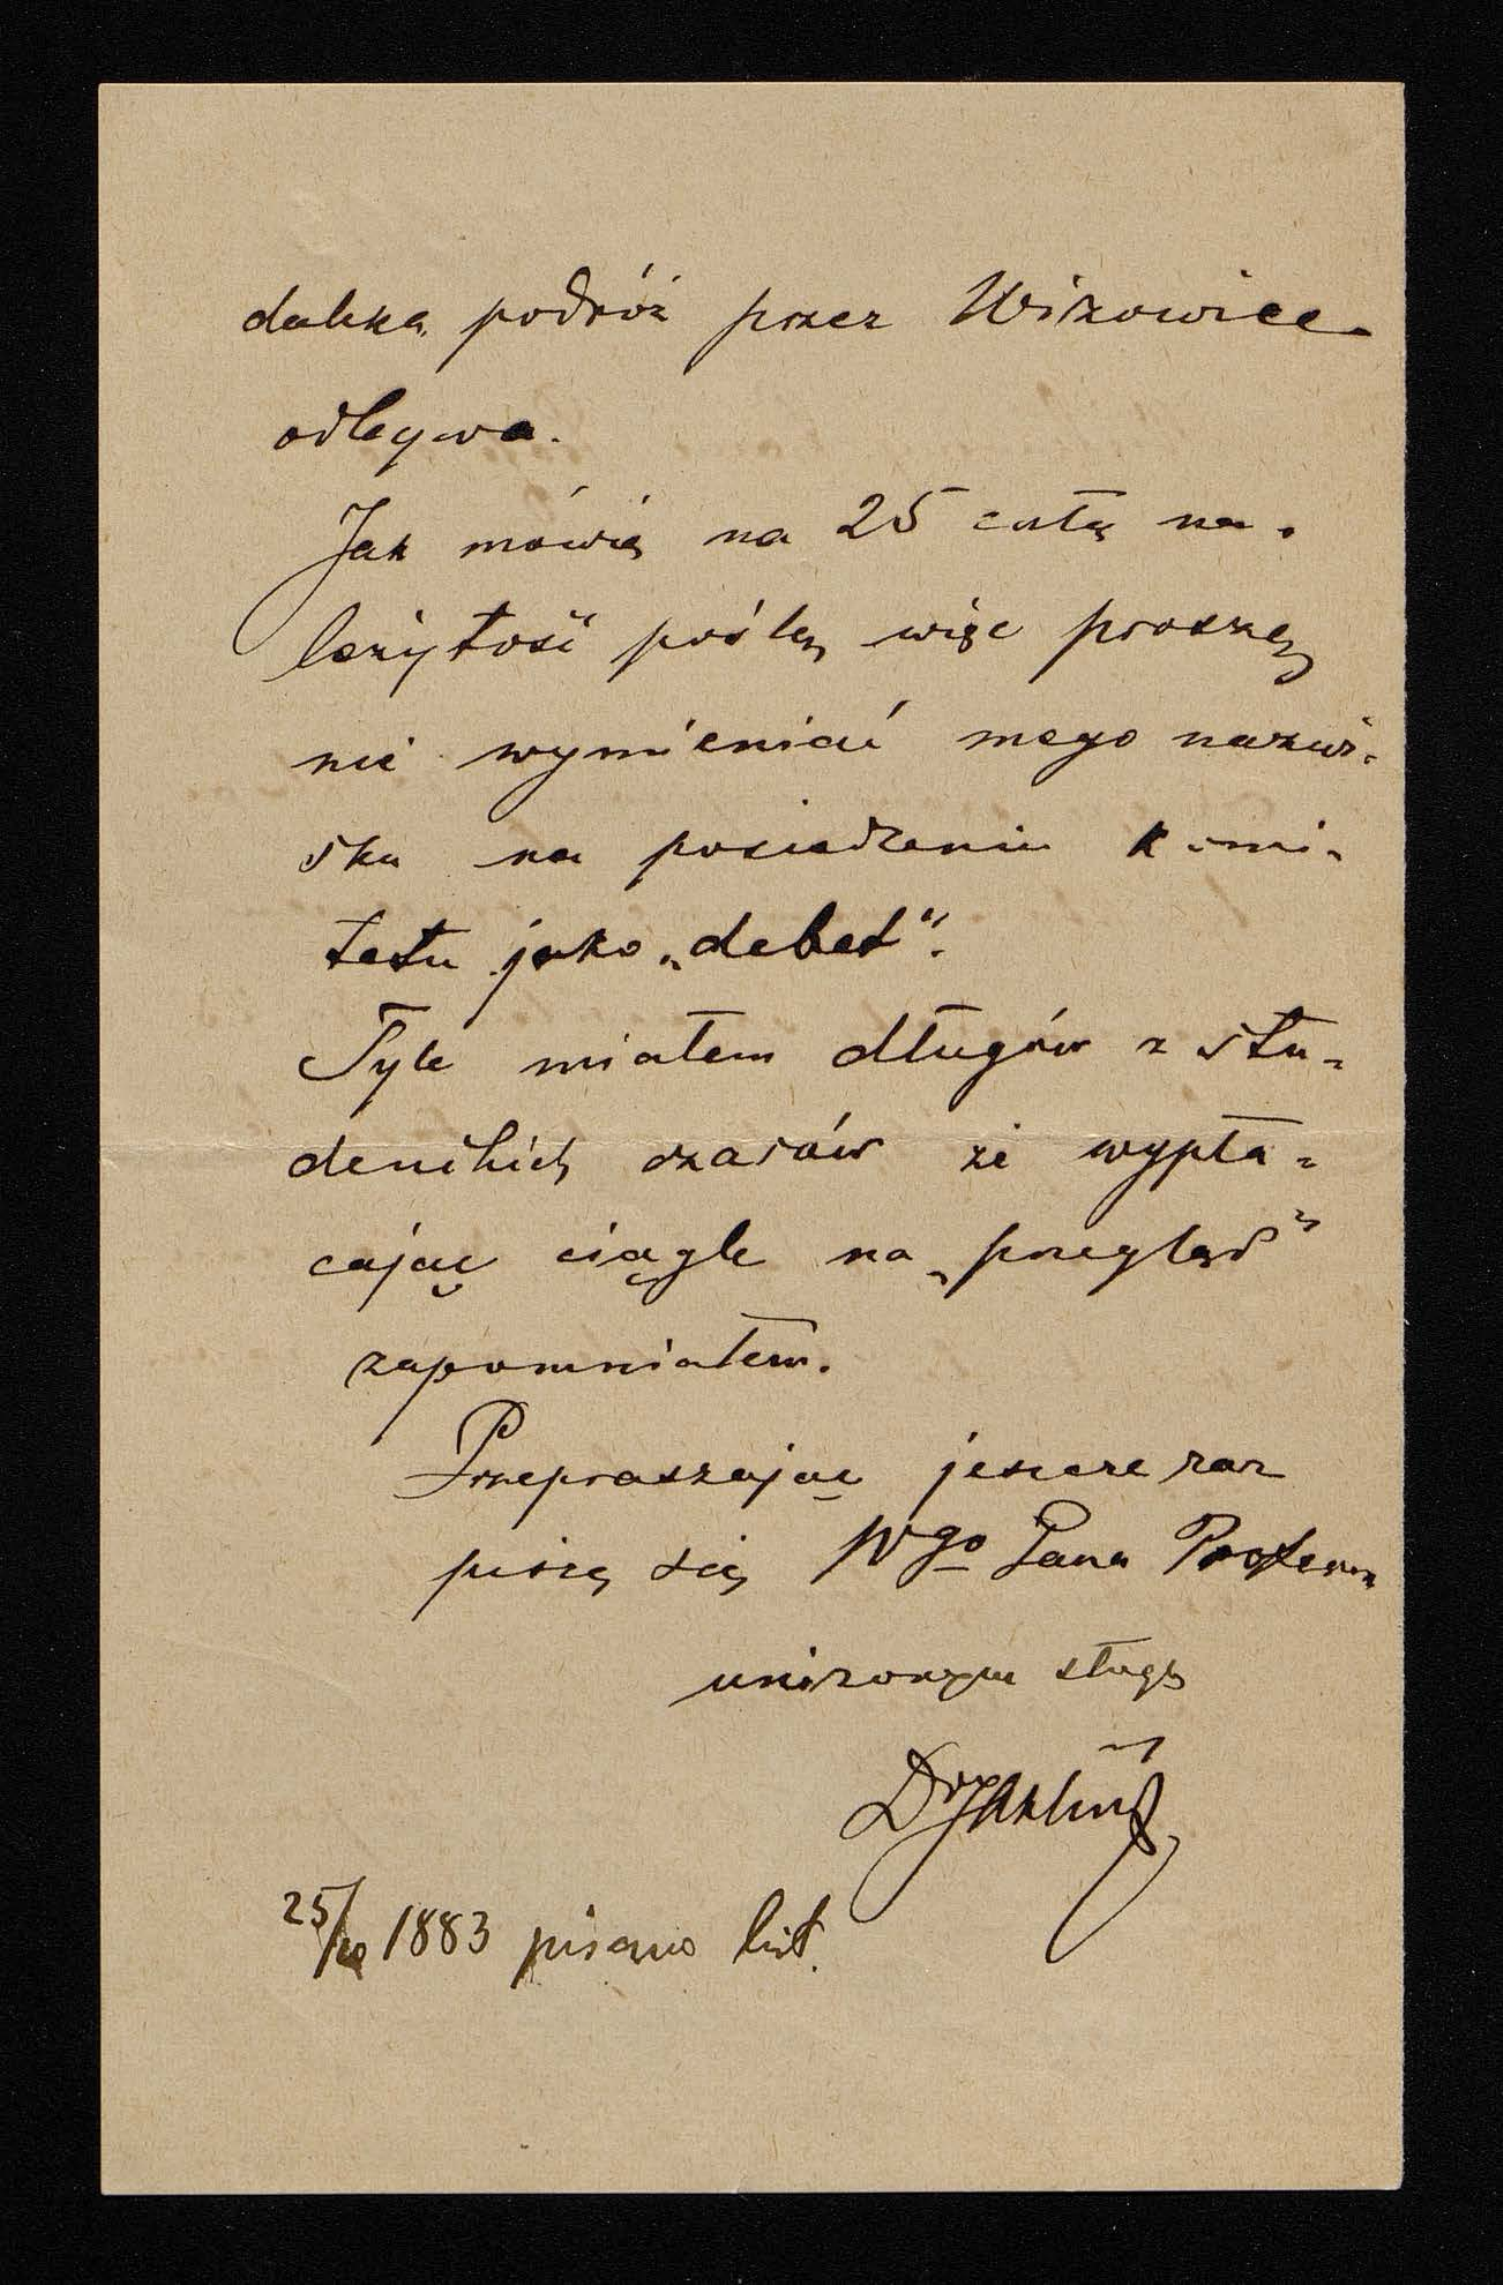 daleką podróż przez Wizowice
odbywa.
Jak mówię na 25 całą na-
leżytość poślę, więc proszę
nie wymieniać mego nazwi-
ska na posiedzeniu komi-
tetu jako „debet“.
Tyle miałem długów z stu-
denckich czasów że wypła-
cając ciągle na „przegląd“
zapomniałem.
Przepraszając jeszcze raz
piszę się Wgo Pana Profesora
uniżonym sługą
Dr
25/10 1883 pisano list.